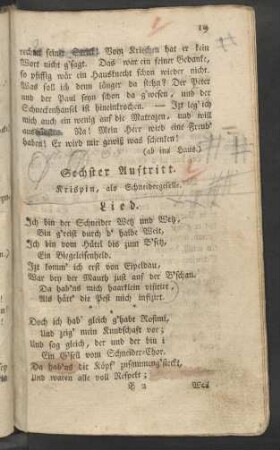 19
rechnet seine Strick! Vom Kriechen hat er kein
Wort nicht g'sagt. Das war ein feiner Gedanke,
so pfiffig wär ein Hausknecht schon wieder nicht.
Was soll ich denn länger da stehn? Der Peter
und der Paul seyn schon da g'wesen, und der
Schneckenhansel ist hineinkrochen. — Izt leg' ich
mich auch ein wenig auf die Matrazen, und will
Na! Mein Herr wird eine Freud'
haben! Er wird mir gewiß was schenken!
(ab ins Haus.)
Sechster Auftritt.
Krispin, als Schneidergeselle.
Lied.
Ich bin der Schneider Wetz und Wetz,
Bin g'reist durch d' halbe Welt,
Ich bin vom Hütel bis zum B'setz,
Ein Biegeleisenheld.
Izt komm' ich erst von Sipeldau,
War bey der Mauth just auf der B'schau.
Da hab'ns mich haarklein visitirt,
Als hätt' die Pest mich infizirt.
Doch ich hab' gleich g'habt Rosiml,
Und zeig' mein Kundschaft vor;
Und sag gleich, der und der bin i
Ein G'sell vom Schneider-Chor.
Da hab'ns die Köpf' zusammeng'steckt,
Und waren alle voll Respekt;
Was